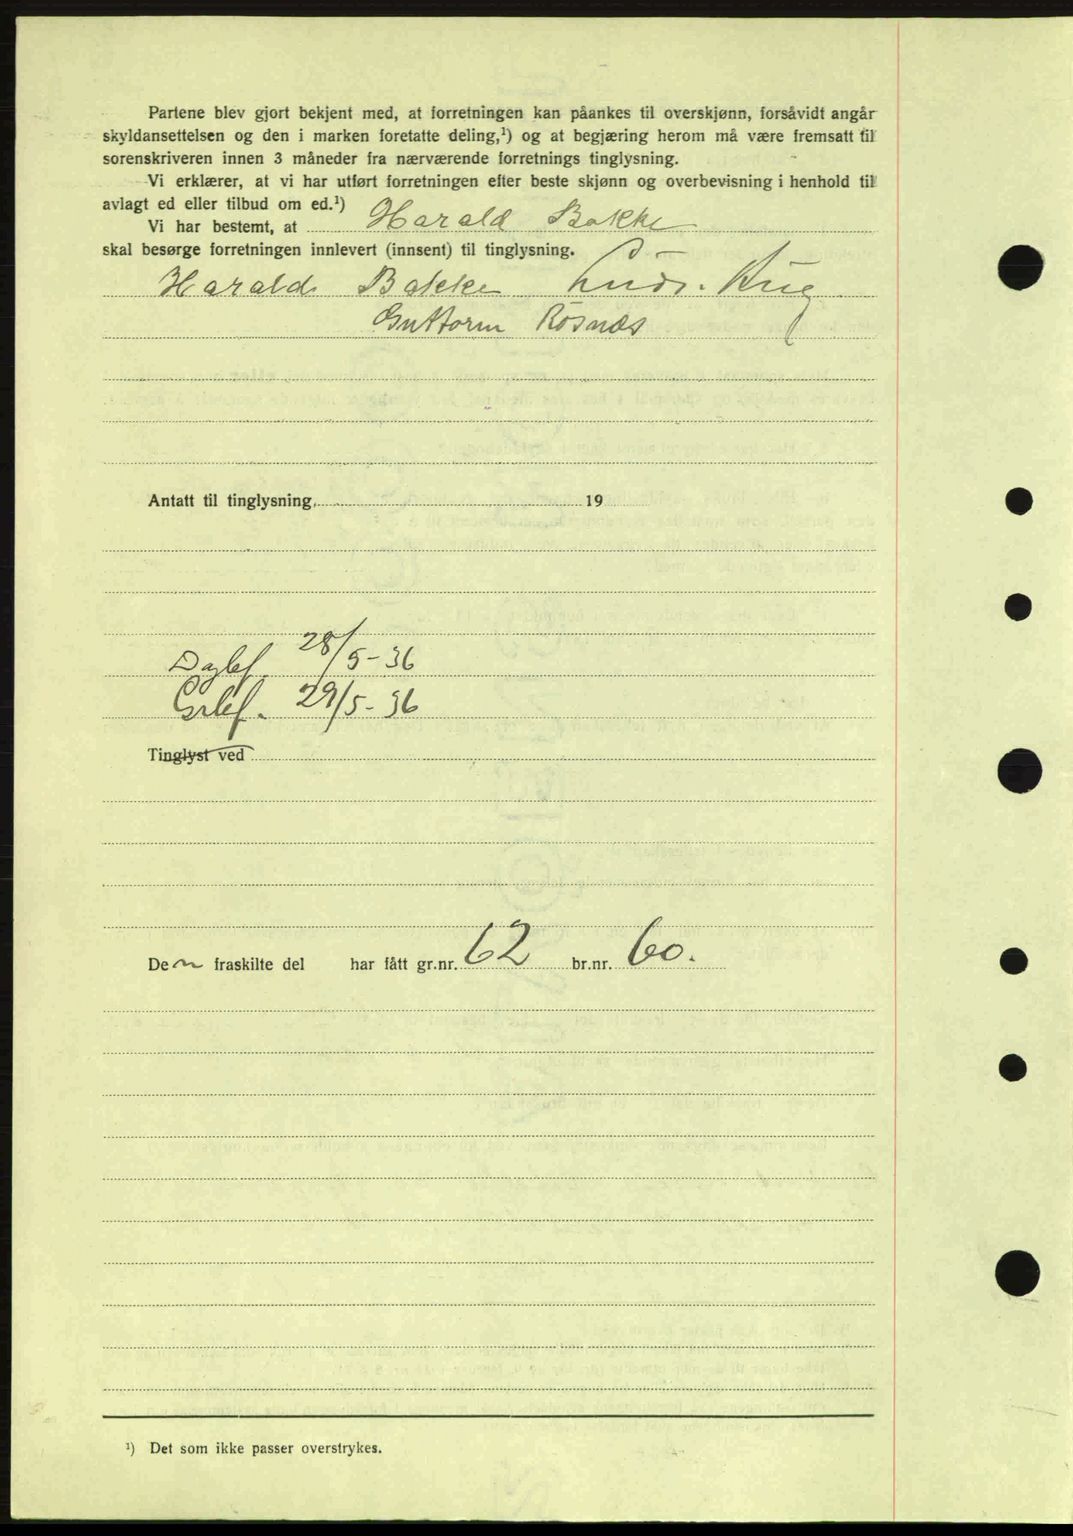 Partene blev gjort bekjent med, at forretningen kan påankes til overskjønn, forsåvidt angår
skyldansettelsen og den i marken foretatte deling,¹) og at begjæring herom må være fremsatt til
sorenskriveren innen 3 måneder fra nærværende forretnings tinglysning.
Vi erklærer, at vi har utført forretningen efter beste skjønn og overbevisning i henhold til
avlagt ed eller tilbud om ed.¹)
Vi har bestemt, at Harald Bakke
skal besørge forretningen innlevert (innsent) til tinglysning.
Harald Bakke Ludv. Krug
Guttorm Rösnæs
Antatt til tinglysning, 19
Daglef. 28/5-36
Grlef. 29/5-36
Tinglyst ved
Den fraskilte del har fått gr.nr. 62 br.nr. 60.
¹) Det som ikke passer overstrykes.